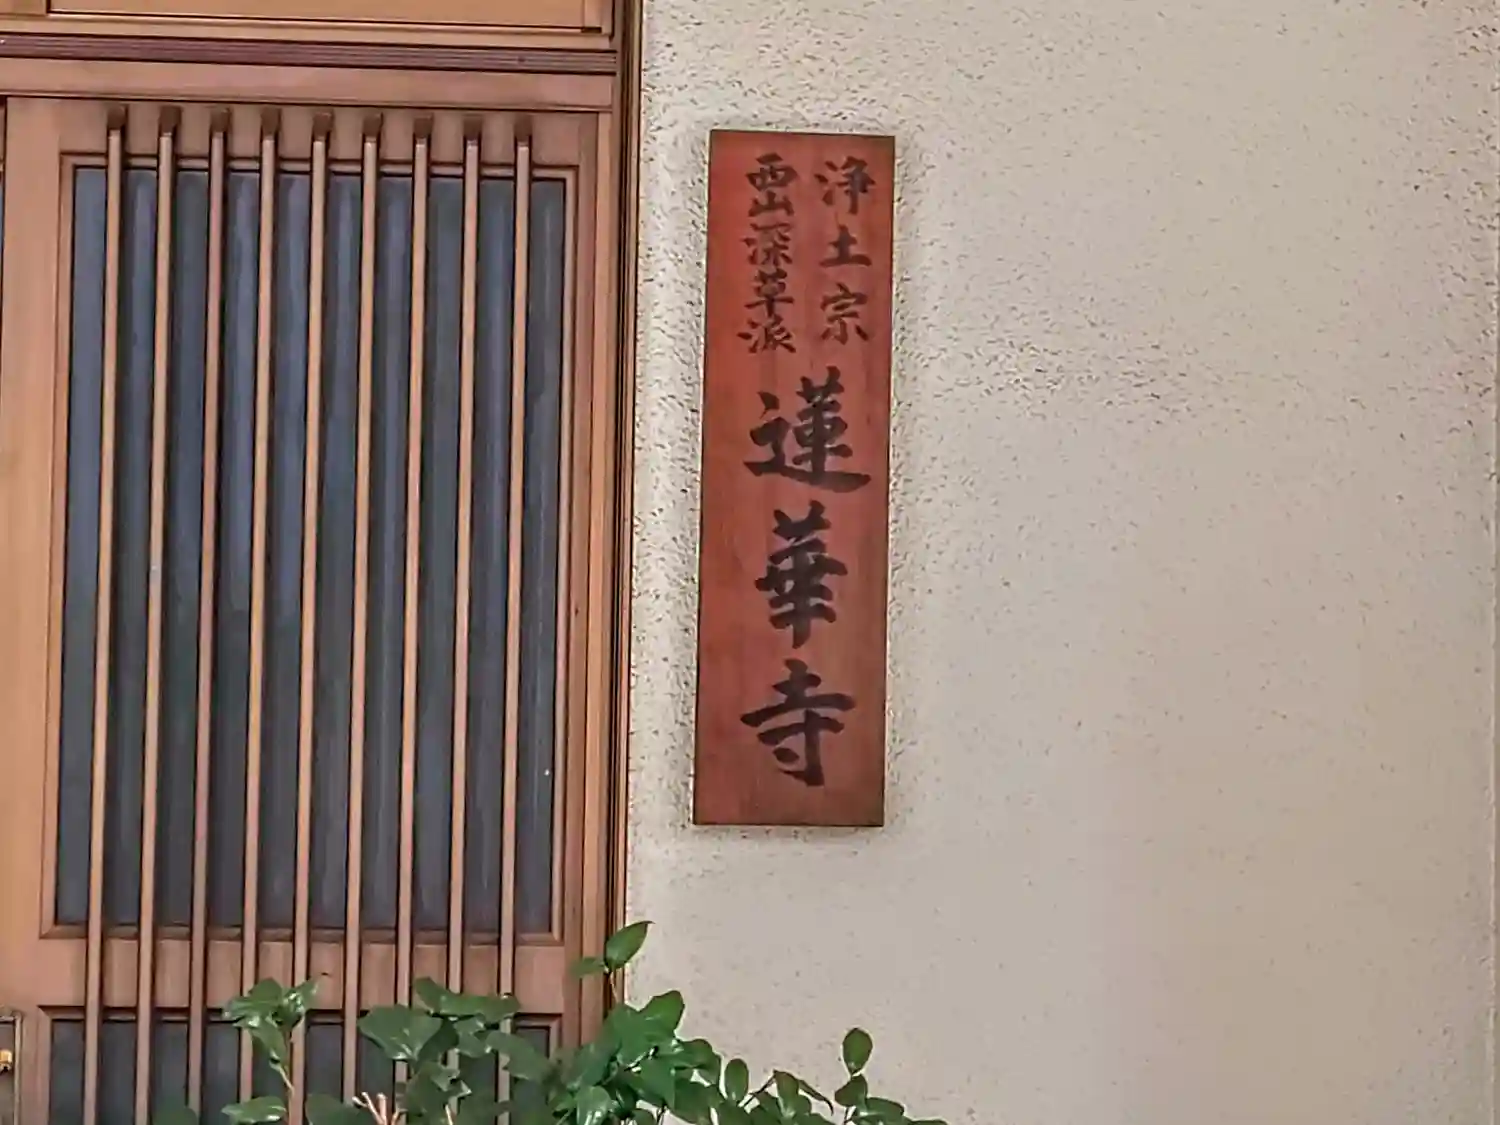 浄土宗
西山深草派
蓮華寺